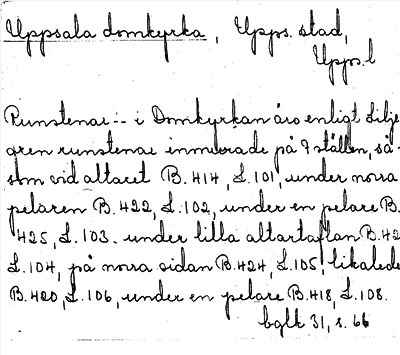 Uppsala domkyrka, Upps. stad,
Upps. l
Runstenar -- i Domkyrkan äro enligt Lilje
gren runstenar inmurade på 9 ställen, så-
som vid altaret B. 414, L. 101, under norra
pelaren B. 422, L. 102, under en pelare B.
425, L. 103. under lilla altartaflan B. 42
L. 104, på norra sidan B. 424, L. 105, likalede
B. 420, L. 106, under en pelare B. 418, L. 108.
bglk 31, s. 66